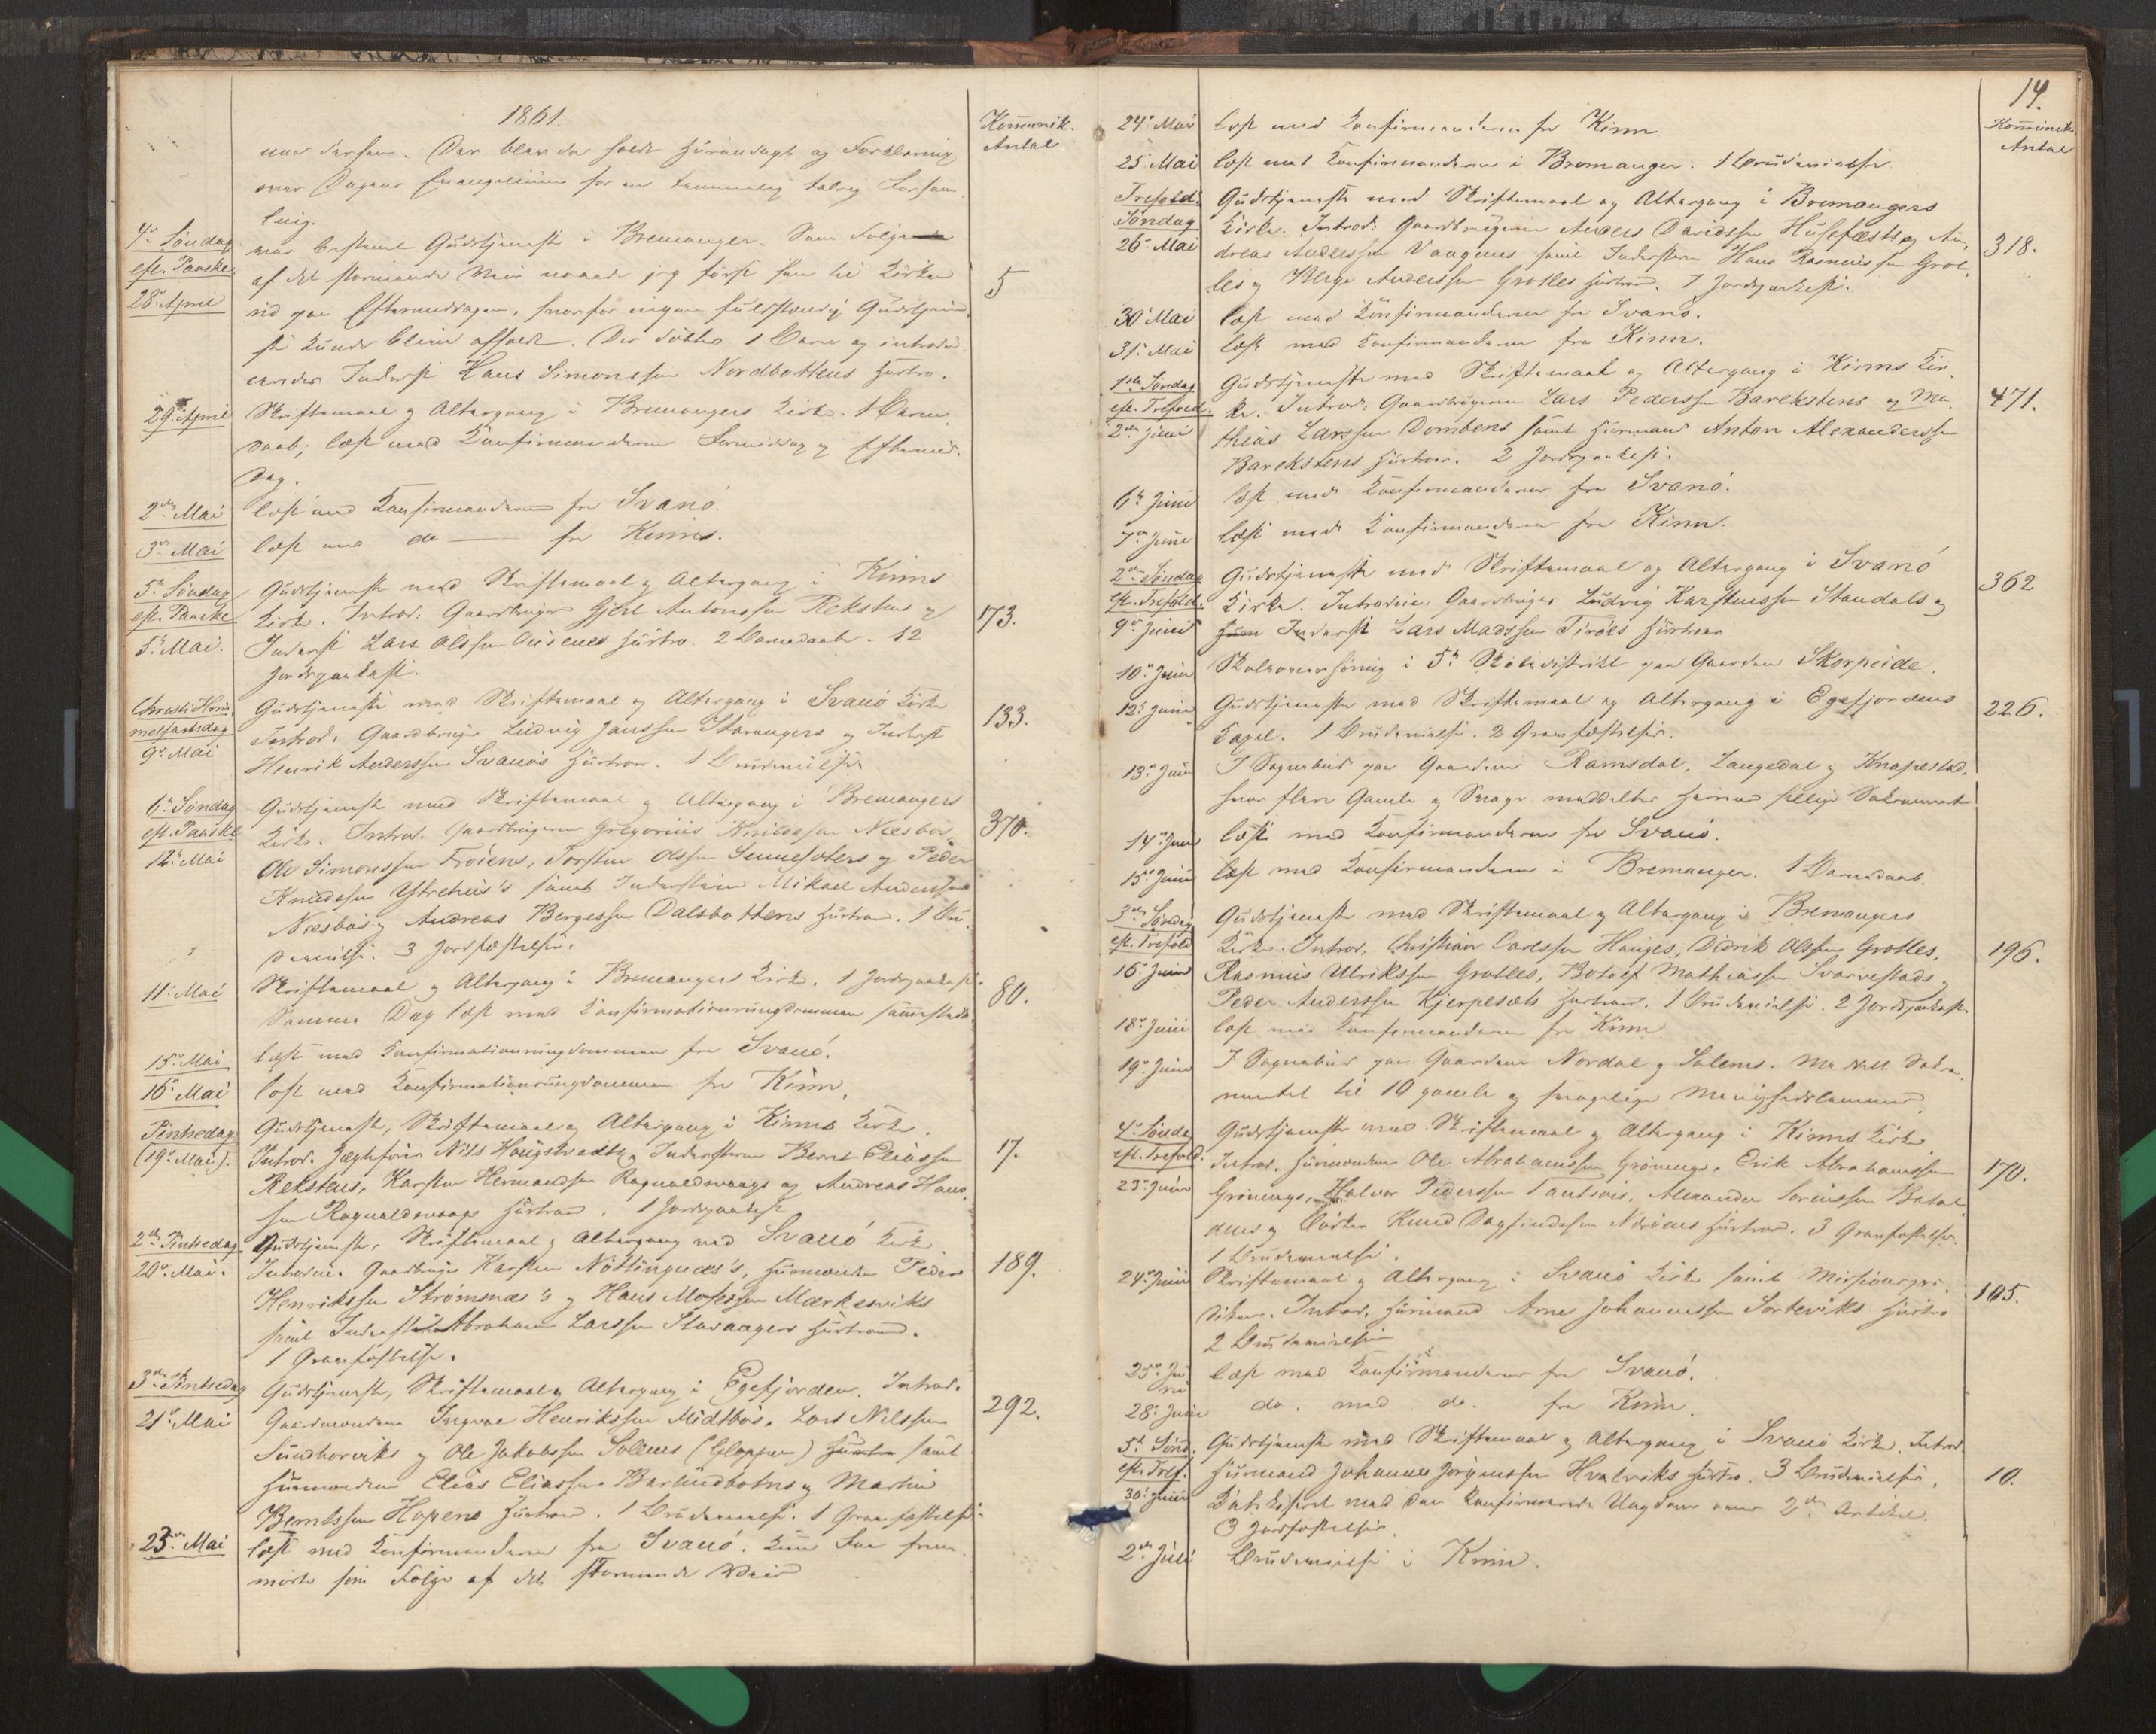 1861.
Kommunik.
Antal
naa dersen. Der blev da holdt Husandagt og Forklaring
over Dagens Evangelium for en temmelig talrig Forsam
ling.
4de Søndag
eft. Paaske
28de April
var bestemt Gudstjeneste i Bremanger. Som Følge
af det stormende Veir naaede jeg først frem til Kirken
ud paa Eftermiddagen, hvorfor ingen fuldstændig Gudstjene
ste kunde blive afholdt. Der døbtes 1 Barn og introdu
ceredes Inderst Hans Simonssen Nordbottens Hustro.
5
29de April
Skriftemaal og Altergang i Bremangers Kirke. 1 Barne
daab; læst med Konfirmanderne Formiddag og Eftermid.
dag.
2den Mai
læst med Konfirmanderne fra Svanø.
3die Mai
læst med do — fra Kinn.
5te Søndag
eft. Paaske
5te Mai.
Gudstjeneste med Skriftemaal og Altergang i Kinns
Kirke. Introd: Gaardbruger Gjert Antonssen Rekstens og
Inderst Lars Olssen Husenes Hustro. 2 Barnedaab. 12
Jordpaakast.
173.
Christi Him.
melfartsdag
9de Mai
Gudstjeneste med Skriftemaal og Altergang i Svanø Kirke
Introd: Gaardbruger Ludvig Janssen Stavangers og Inderst
Henrik Anderssen Svanøs Hustroer. 1 Brudevielse.
133.
6te Søndag
eft. Paaske
12te Mai
Gudstjeneste med Skriftemaal og Altergang i Bremangers
Kirke. Introd. Gaardbrugerne Gregorius Knudssen Næsbøs,
Ole Simonssen Frøiens, Torsten Olssen Sennesæters og Peder
Knudssen Ytrehus's samt Inderstene Mikael Anderssen
Næsbøs og Andreas Bergessen Dalsbottens Hustroer. 1 Bru
devielse. 3 Jordfæstelser.
370.
11te Mai
Skriftemaal og Altergang i Bremangers Kirke. 1 Jordpaakast.
Samme Dag læst med Konfirmationsungdommen sammesteds.
80.
15de Mai
læst med Konfirmationsungdommen fra Svanø.
16de Mai
læst med Konfirmationsungdommen fra Kinn.
Pintsedag
(19de Mai).
Gudstjeneste, Skriftemaal og Altergang i Kinns Kirke.
Introd. Jægtfører Nils Haugstvedts, Inderstene Bernt Eliassen
Rekstens, Karsten Hermandsen Ragnaldsvaags og Andreas Hans
sen Ragnaldsvaags Hustroer. 1 Jordpaakast
17.
2den Pintsedag
20de Mai.
Gudstjeneste, Skriftemaal og Altergang ved Svanø Kirke
Introduc. Gaardbruger Karsten Nøttingnes's, Huusmændene Peder
Henrikssen Strømsnæs's og Hans Mosessen Mærkesviks
samt Inderst Abraham Larssen Stavangers Hustroer.
1 Gravfæstelse.
189.
3die Pintsedag
21de Mai
Gudstjeneste, Skriftemaal og Altergang i Egefjorden. Introd.
Gaardmændene Ingvar Henrikssen Midtbøs, Lars Nilssen
Sundhorviks og Ole Jakobssen Solems (Gloppen) samt
Huusmændene Elias Eliassen Barlindbotns og Martin
Berntssen Hopens Hustroer. 1 Brudevielse. 1 Gravfæstelse.
292.
23de Mai
læst med Konfirmanderne fra Svanø. Kun Faa frem
mødte som Følge af det stormende Veir
14.
Kommunik.
Antal
24de Mai
læst med Konfirmanderne fra Kinn
25 Mai
læst med Konfirmanderne i Bremanger. 1 Brudevielse
Trefold.
Søndag
26de Mai
Gudstjeneste med Skriftemaal og Altergang i Bremangers
Kirke. Introd: Gaardbrugerne Anders Davidssen Husefæsts og An.
dreas Anderssen Vaagenes samt Inderstene Hans Rasmussen Grot.
les og Børge Anderssen Grotles Hustroer. 7 Jordpaakast.
318.
30te Mai
læst med Konfirmanderne fra Svanø.
31te Mai
læst med Konfirmanderne fra Kinn.
1ste Søndag
eft. Trefold.
2den Juni
Gudstjeneste med Skriftemaal og Altergang i Kinns Kir.
ke. Introd: Gaardbrugerne Lars Pederssen Barekstens og Ma.
thias Larssen Dombens samt Huusmand Anton Alexanderssen
Barekstens Hustroer. 2 Jordpaakast.
471.
6te Juni
læst med Konfirmanderne fra Svanø.
7de Juni
læst med Konfirmanderne fra Kinn.
2den Søndag
eft. Trefold.
9de Juni
Gudstjeneste med Skriftemaal og Altergang i Svanø
Kirke. Introduc: Gaardbruger Ludvig Karstenssen Standals og
Inderst Lars Madssen Tirøes Hustroer
362
10de Juni
Skoleoverhøring i 5te Skoledistrikt paa Gaarden Skorpeide.
12te Juni
Gudstjeneste med Skriftemaal og Altergang i Egefjordens
Kapel. 1 Brudevielse. 2 Gravfæstelser.
226.
13de Juni
I Sognebud paa Gaardene Ramsdal, Langedal og Knapestad,
hvor flere Gamle og Svage meddeltes Herrens hellige Sakrament
14de Juni
læst med Konfirmanderne fra Svanø.
15de Juni
læst med Konfirmanderne i Bremanger. 1 Barnedaab.
3die Søndag
eft. Trefold
16de Juni
Gudstjeneste med Skriftemaal og Altergang i Bremangers
Kirke. Introd. Christian Carlssen Hauges, Didrik Olssen Grotles,
Rasmus Ulrikssen Grotles, Botolf Mathiassen Svarvestads,
Peder Anderssen Kjerpesæts Hustroer. 1 Brudevielse. 2 Jordpaakast.
196.
18de Juni
læst med Konfirmanderne fra Kinn
19de Juni
I Sognebud paa Gaardene Nordal og Solems. Meddelt Sakra
mentet til 10 gamle og svagelige Menighedslemmer.
4de Søndag
eft. Trefold.
23de Juni
Gudstjeneste med Skriftemaal og Altergang i Kinns Kirke
Introd. Huusmændene Ole Abrahamssen Grønengs, Erik Abrahamssen
Grønengs, Halvor Pederssen Tantsøis, Alexander Sørenssen Batal
dens og Knud Dagfindssen Hustroer. 3 Gravfæstelser.
1 Brudevielse.
170.
24de Juni
Skriftemaal og Altergang i Svanø Kirke samt Missionspræ.
diken. Introd. Huusmand Arne Johannessen Sorteviks Hustro
2 Brudevielser
105.
25de Ju
ni
læst med Konfirmanderne fra Svanø.
28de Juni
do. med do. fra Kinn.
5te Sønd.
eft. Tref.
30te Juni
Gudstjeneste med Skriftemaal og Altergang i Svanø Kirke. Introd.
Huusmand Johannes Jørgenssen Hvalviks Hustro. 3 Brudevielser.
Katekiseret med den konfirmerede Ungdom over 2den Artikel.
3 Jordfæstelser.
10.
2den Juli
Brudevielse i Kinn.